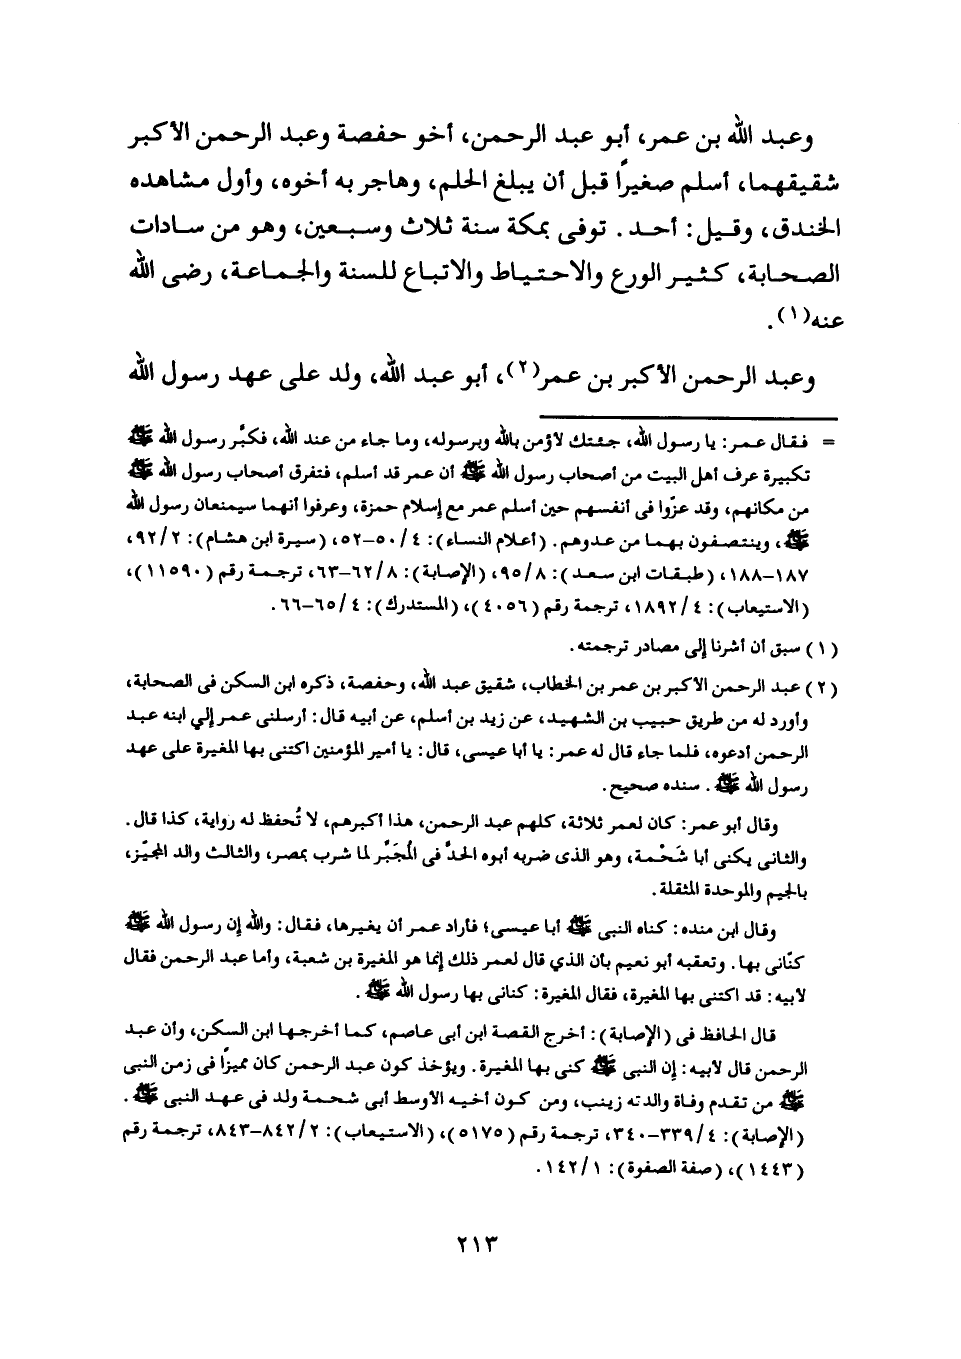 وعبد الله بن عمر، أبو عبد الرحمن، أخو حفصة وعبد الرحمن الأكبر
شقيقهما، أسلم صغيراً قبل أن يبلغ الحلم، وهاجر به أخوه، وأول مشاهده
الخندق، وقيل: أحد. توفى بمكة سنة ثلاث وسبعين، وهو من سادات
الصحابة، كثير الورع والاحتياط والاتباع للسنة والجماعة، رضى الله
عنه(١).
وعبد الرحمن الأكبر بن عمر(٢)، أبو عبد الله، ولد على عهد رسول الله
= فقال عمر: يا رسول الله، جئتك لأؤمن بالله وبرسوله، وما جاء من عند الله، فكبَّر رسول الله ﷺ
تكبيرة عرف أهل البيت من أصحاب رسول الله ﷺ أن عمر قد أسلم، فتفرق أصحاب رسول الله ﷺ
من مكانهم، وقد عزّوا فى أنفسهم حين أسلم عمر مع إسلام حمزة، وعرفوا أنهما سيمنعان رسول الله
ﷺ، وينتصفون بهما من عدوهم. (أعلام النساء): ٤/ ٥٠-٥٢، (سيرة ابن هشام): ٢/ ٩٢،
١٨٧-١٨٨، (طبقات ابن سعد): ٨/ ٩٥، (الإصابة): ٨/ ٦٢-٦٣، ترجمة رقم (١١٥٩٠)،
(الاستيعاب): ٤/ ١٨٩٢، ترجمة رقم (٤٠٥٦)، (المستدرك): ٤/ ٦٥-٦٦.
(١) سبق أن أشرنا إلى مصادر ترجمته.
(٢) عبد الرحمن الأكبر بن عمر بن الخطاب، شقيق عبد الله، وحفصة، ذكره ابن السكن فى الصحابة،
وأورد له من طريق حبيب بن الشهيد، عن زيد بن أسلم، عن أبيه قال: أرسلنى عمر إلي ابنه عبد
الرحمن أدعوه، فلما جاء قال له عمر: يا أبا عيسى، قال: يا أمير المؤمنين اكتنى بها المغيرة على عهد
رسول الله ﷺ. سنده صحيح.
وقال أبو عمر: كان لعمر ثلاثة، كلهم عبد الرحمن، هذا أكبرهم، لا تُحفظ له رواية، كذا قال.
والثانى يكنى أبا شَحْمة، وهو الذى ضربه أبوه الحدَّ فى المُجَبَّر لما شرب بمصر، والثالث والد المجيّز،
بالجيم والموحدة المثقلة.
وقال ابن منده: كناه النبى ﷺ أبا عيسى؛ فأراد عمر أن يغيرها، فقال: والله إن رسول الله ﷺ
كنّانى بها. وتعقبه أبو نعيم بأن الذي قال لعمر ذلك إنما هو المغيرة بن شعبة، وأما عبد الرحمن فقال
لأبيه: قد اكتنى بها المغيرة، فقال المغيرة: كنانى بها رسول الله ﷺ.
قال الحافظ فى (الإصابة): أخرج القصة ابن أبى عاصم، كما أخرجها ابن السكن، وأن عبد
الرحمن قال لأبيه: إن النبى ﷺ كنى بها المغيرة. ويؤخذ كون عبد الرحمن كان مميزاً فى زمن النبى
ﷺ من تقدم وفاة والدته زينب، ومن كون أخيه الأوسط أبى شحمة ولد فى عهد النبى ﷺ.
(الإصابة): ٤/ ٣٣٩-٣٤٠، ترجمة رقم (٥١٧٥)، (الاستيعاب): ٢/ ٨٤٢-٨٤٣، ترجمة رقم
(١٤٤٣)، (صفة الصفوة): ١/ ١٤٢.
٢١٣